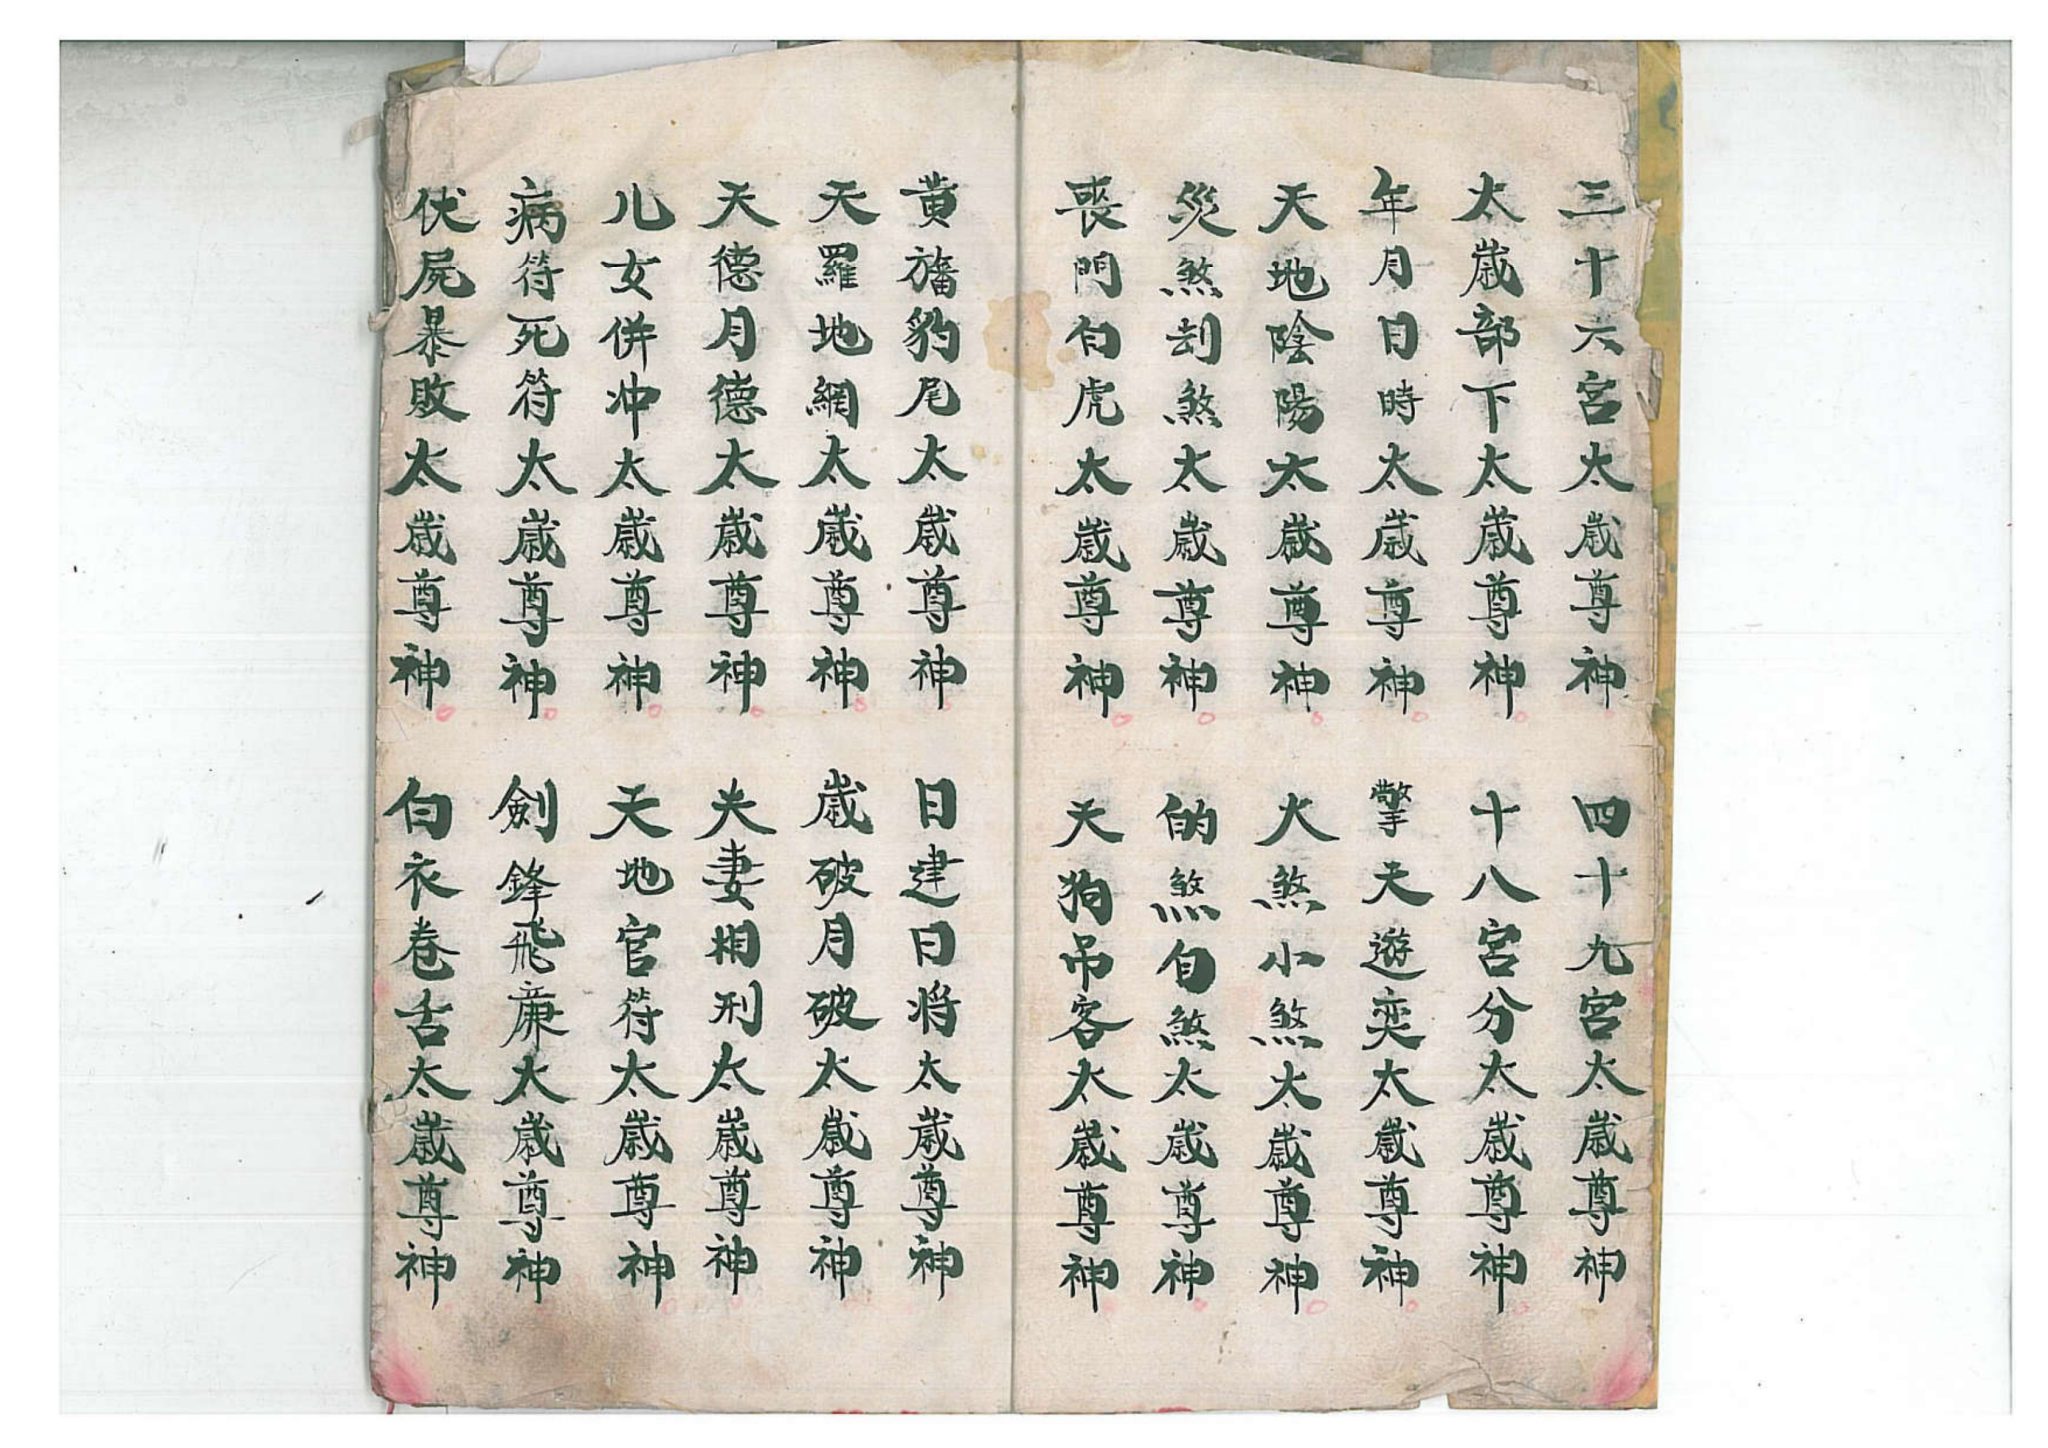 三十六宮太歲尊神 四十九宮太歲尊神
太歲部下太歲尊神 十八宮分太歲尊神
年月日時太歲尊神 擎天遊奕太歲尊神
天地陰陽太歲尊神 大煞小煞太歲尊神
災煞刦煞太歲尊神 的煞自煞太歲尊神
喪門白虎太歲尊神 天狗吊客太歲尊神
黃旛豹尾太歲尊神 日建日将太歲尊神
天羅地網太歲尊神 歲破月破太歲尊神
天德月德太歲尊神 夫妻相刑太歲尊神
儿女併冲太歲尊神 天地官符太歲尊神
病符死符太歲尊神 劍鋒飛廉太歲尊神
伏屍暴敗太歲尊神 白衣卷舌太歲尊神